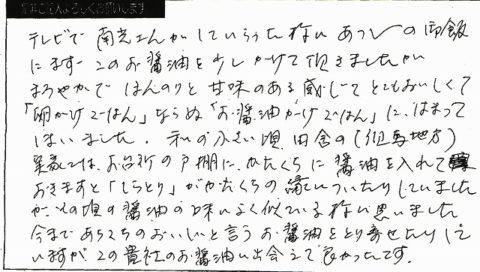 テレビで南光さんがしていらった様にあつあつの御飯
にまず このお醤油を少しかけて頂きましたが
まろやかで ほんのりと甘味のある感じで とてもおいしくて
「卵かけごはん」ならぬ「お醤油かけごはん」に、はまって
しまいました。私の小さい頃 田舎の(但馬地方)
実家では、お台所の戸棚に、かたくちに醤油を入れて
おきますと「しらとり」がかたくちの縁についたりしていました
が、その頃の醤油の味によく似ている様に思いました
今まであちこちのおいしいと言うお醤油をとり寄せたりして
いますが この貴社のお醤油に出会えて良かったです。